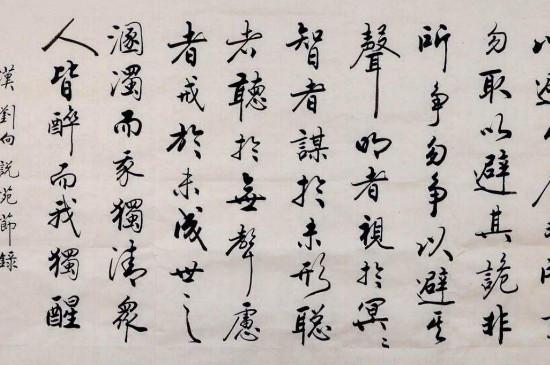 勿取以避其詭非
所争勿争以避其
聲明者視於冥〻
智者謀於未形聪
者聽於無聲慮
者戒於未成世之
溷濁而我獨清眾
人皆醉而我獨醒
漢劉向說苑節錄